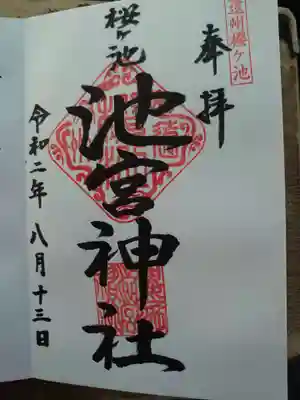 遠州櫻ヶ池
奉拝
櫻ヶ池
池宮神社
令和二年八月十三日